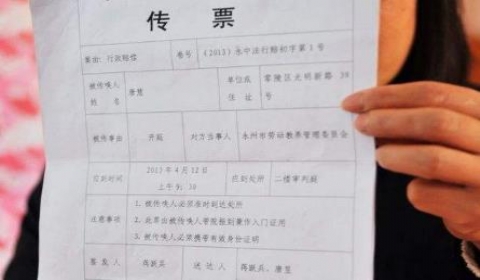 传票
案由：行政赔偿 卷号 （2013）永中法行赔初字第1号
被传唤人 单位或 零陵区光明新路39
姓名 唐慧 住址 号
被传事由 开庭 对方当事人 永州市劳动教养管理委员会
应到时间 2013年4月12日 应到处所 二楼审判庭
上午9：30
1.被传唤人必须准时到达处所
注意事项 2.此票由被传唤人带院报到兼作入门证用
3.被传唤人必须携带有效身份证明
签发人 蒋跃兵 送达人 蒋跃兵、唐昱